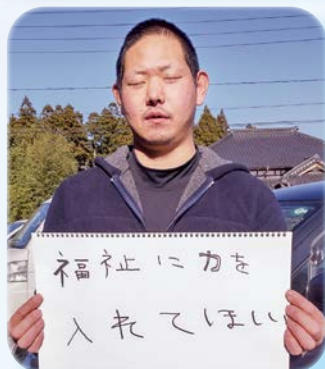 福祉に力を
入れてほしい